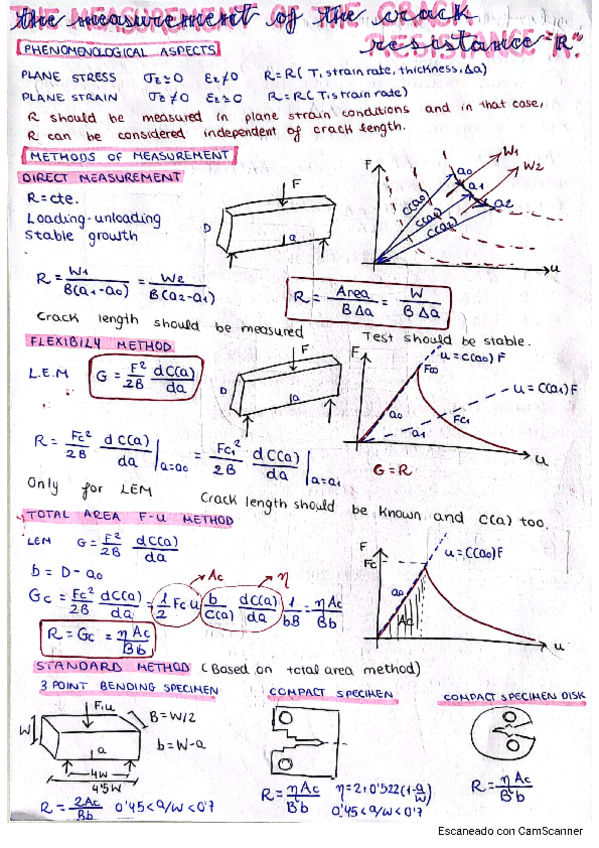 the measurement of the crack
resistance "R".
PHENOMENOLOGICAL ASPECTS
PLANE STRESS σz≃0 εz≠0 R=R(T, strain rate, thickness, Δa)
PLANE STRAIN σz≠0 εz≃0 R=R(T, strain rate)
R should be measured in plane strain conditions and in that case,
R can be considered independent of crack length.
METHODS OF MEASUREMENT
DIRECT MEASUREMENT
R=cte.
Loading-unloading
Stable growth
F
D
a
F
W1
W2
a0
a1
a2
C(a0)
C(a1)
C(a2)
u
R = W1/B(a1-a0) = W2/B(a2-a1)
R = Area/BΔa = W/BΔa
Crack length should be measured
Test should be stable.
FLEXIBILIY METHOD
L.E.M G = F²/2B dC(a)/da
F
D
a
F
u=C(a0)F
Fc0
u=C(a1)F
a0
Fc1
a1
G=R
u
R = Fc²/2B dC(a)/da |a=a0 = Fc1²/2B dC(a)/da |a=a1
Only for LEM Crack length should be known and C(a) too.
TOTAL AREA F-u METHOD
LEM G = F²/2B dC(a)/da
b = D-a0
Ac
η
Gc = Fc²/2B dC(a)/da = 1/2 Fc u b/C(a) dC(a)/da 1/bB = ηAc/Bb
R = Gc = ηAc/Bb
F
Fc
u=C(a0)F
a0
Ac
u
STANDARD METHOD (Based on total area method)
3 POINT BENDING SPECIMEN
COMPACT SPECIMEN
COMPACT SPECIMEN DISK
F,u
W
B=W/2
b=W-a
a
4W
4'5W
R = 2Ac/Bb 0'45<a/W<0'7
R = ηAc/Bb η=2+0'522(1-a/W)
0'45<a/W<0'7
R = ηAc/Bb
Escaneado con CamScanner